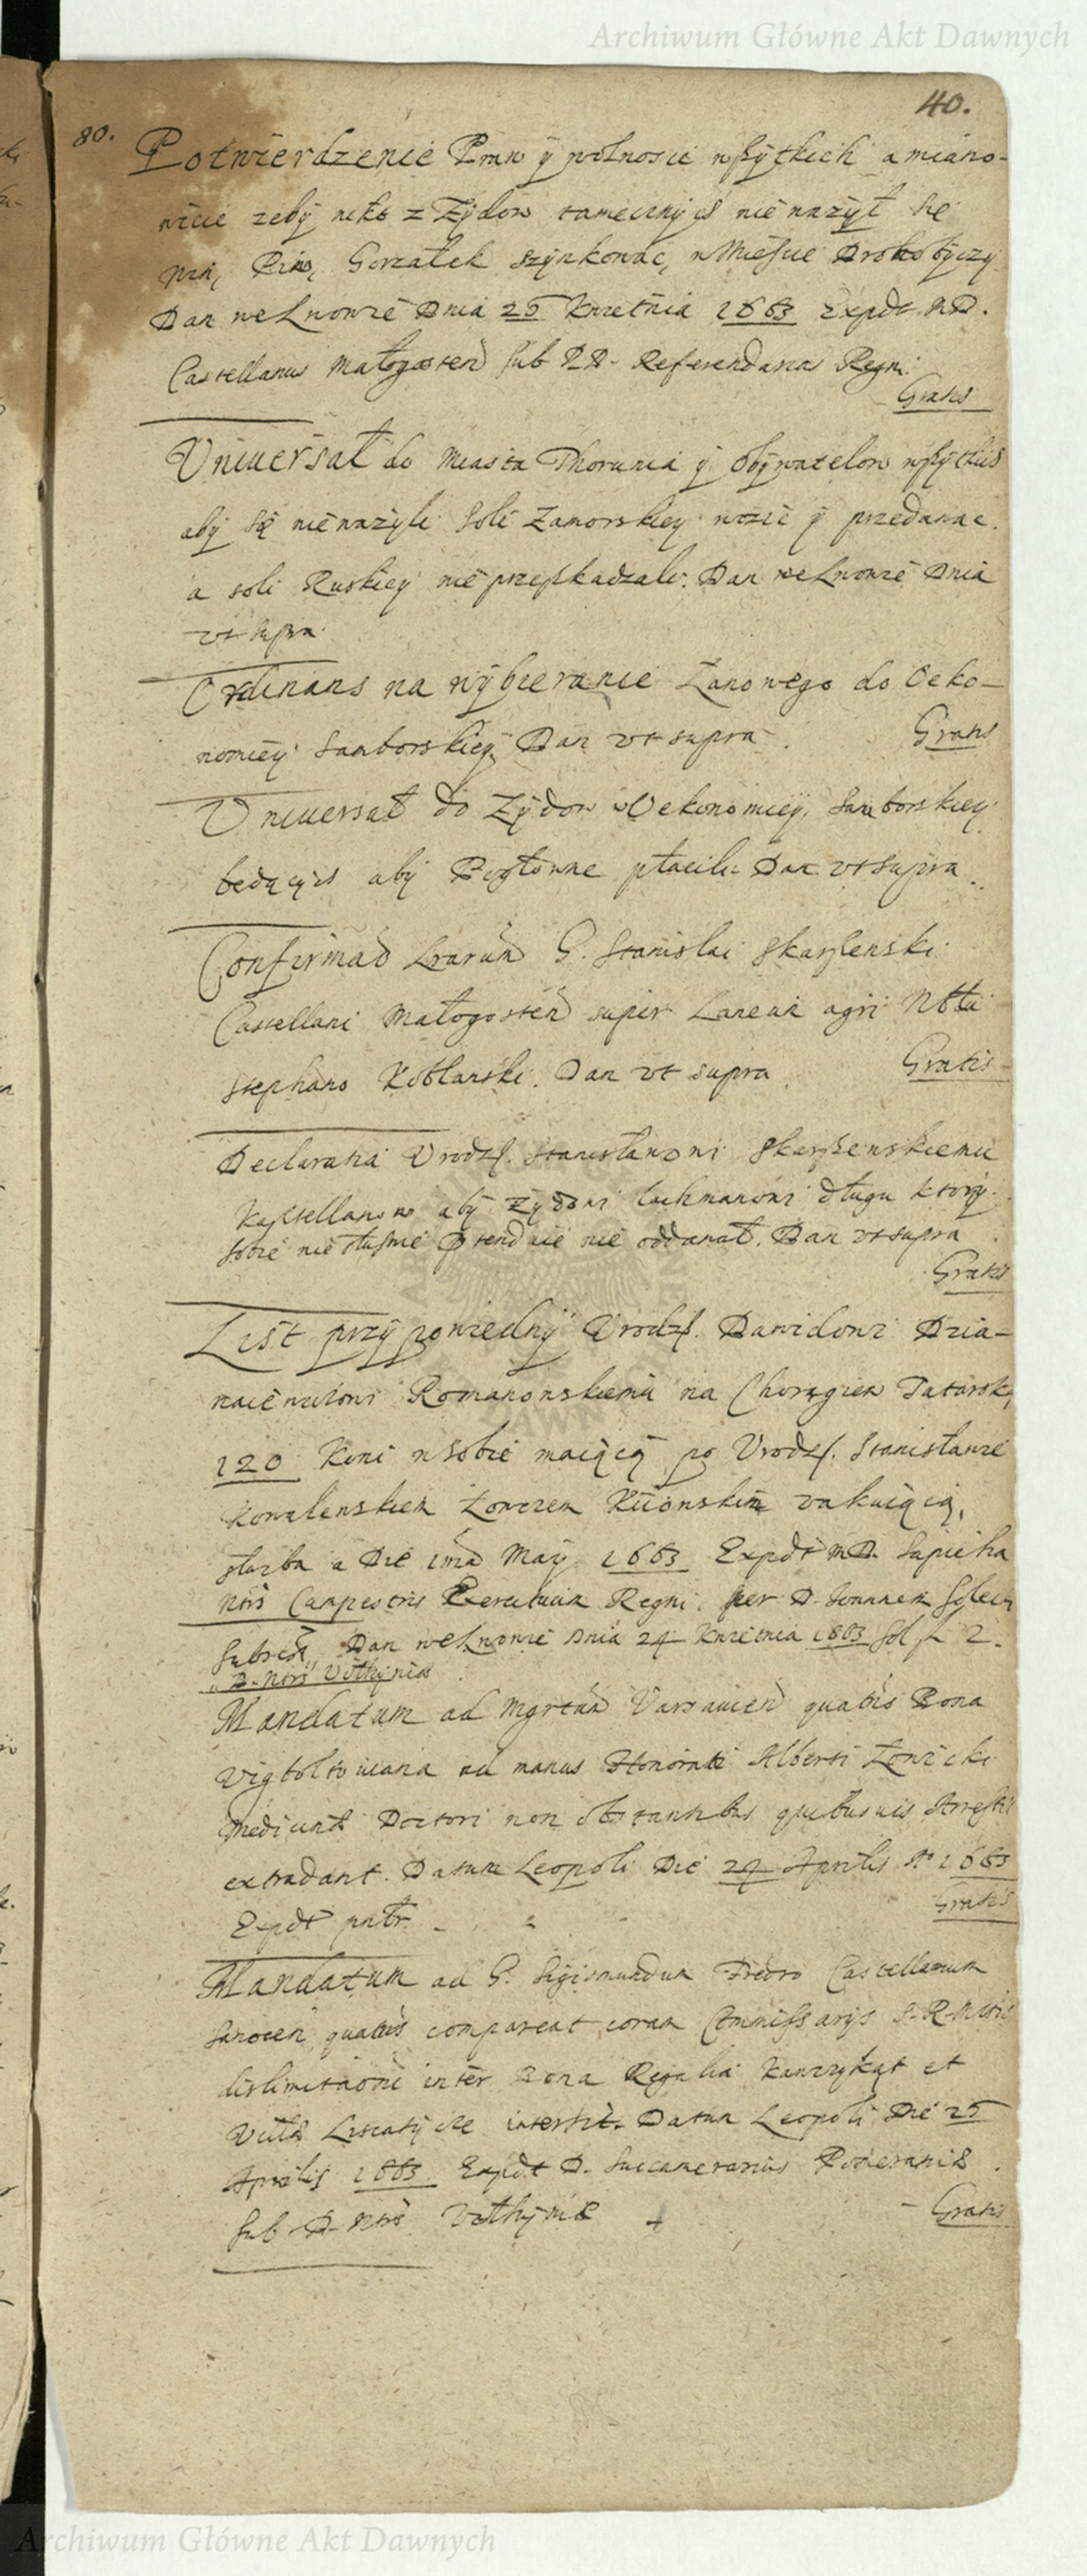 Archiwum Główne Akt Dawnych
40.
80.
Potwierdzenie Praw ÿ wolnoscie wszÿtkich a miano-
wicie zebÿ nikt z Zÿdow tamecznÿch nie nazÿł się
win, Piw, Gorzałek szÿnkowac, w Miescie Drohobÿczÿ
Dan we Lwowie Dnia 25 Kwietnia 1663 Expdt
Castellanus Małogosten sub Referendarias Regni
Gratis
Uniuersał do Miasta Thorunia ÿ Obÿwatelow wszÿtkich
abÿ się nie nazÿli Soli Zamorskieÿ wozic ÿ przedawac.
a soli Ruskieÿ nie przeszkadzali. Dan we Lwowie Dnia
vt supra
Ordinans na wÿbieranie Łanowego do Oeko-
nomieÿ Samborskieÿ Dan vt supra. Gratis
Uniuersał do Zÿdow w Oekonomieÿ Samborskieÿ
będącÿch abÿ Pogłowne płacili Dan vt supra.
Confirmao Lrarum G. Stanislai Skarszenski
Castellani Małogosten super Laneum agri Nbli
Stephano Koblanski. Dan vt supra Gratis
Declaratia Vrodz. Stanisławowi Skarszenskiemu
Kasztellanowi abÿ Zÿdowi Lachmanowi długu ktorÿ
sobie nie słusznie nie oddawał. Dan vt supra
Gratis
List przÿpowiednÿ Vrodz. Dawidowi Dzia-
Romanowskiemu na Chorągiew Tatarską
120 Koni w sobie maiącą po Vrodz. Stanisławie
Kowalenskiem Łowczem Kiiowskim vakuiącą,
słuzba a Die 1ma Maÿ 1663 Expdt MD. Sapieha
Nris Campestris Exercituum Regni. per D. Joannem
Dan we Lwowie Dnia 24 Kwietnia 1663 2.
Mandatum ad Mgrtum Varsauien quatus Bona
ad manus Honorati Alberti Łowicki
Doctori non obstantibus quibusuis Arrestis
extradant. Datum Leopoli Die 24 Aprilis A° 1663
Gratis
Expdt patr.
Mandatum ad G. Sigismundum Fredro Castellanum
Sanocen quatus compareat coram Commissarÿs S. R. Mtis
dislimitaoni inter Bona Regalia et
intersit. Datum Leopoli Die 25
Aprilis 1663. Expdt D. Succamerarius
Sub D. Gratis
Archiwum Główne Akt Dawnych